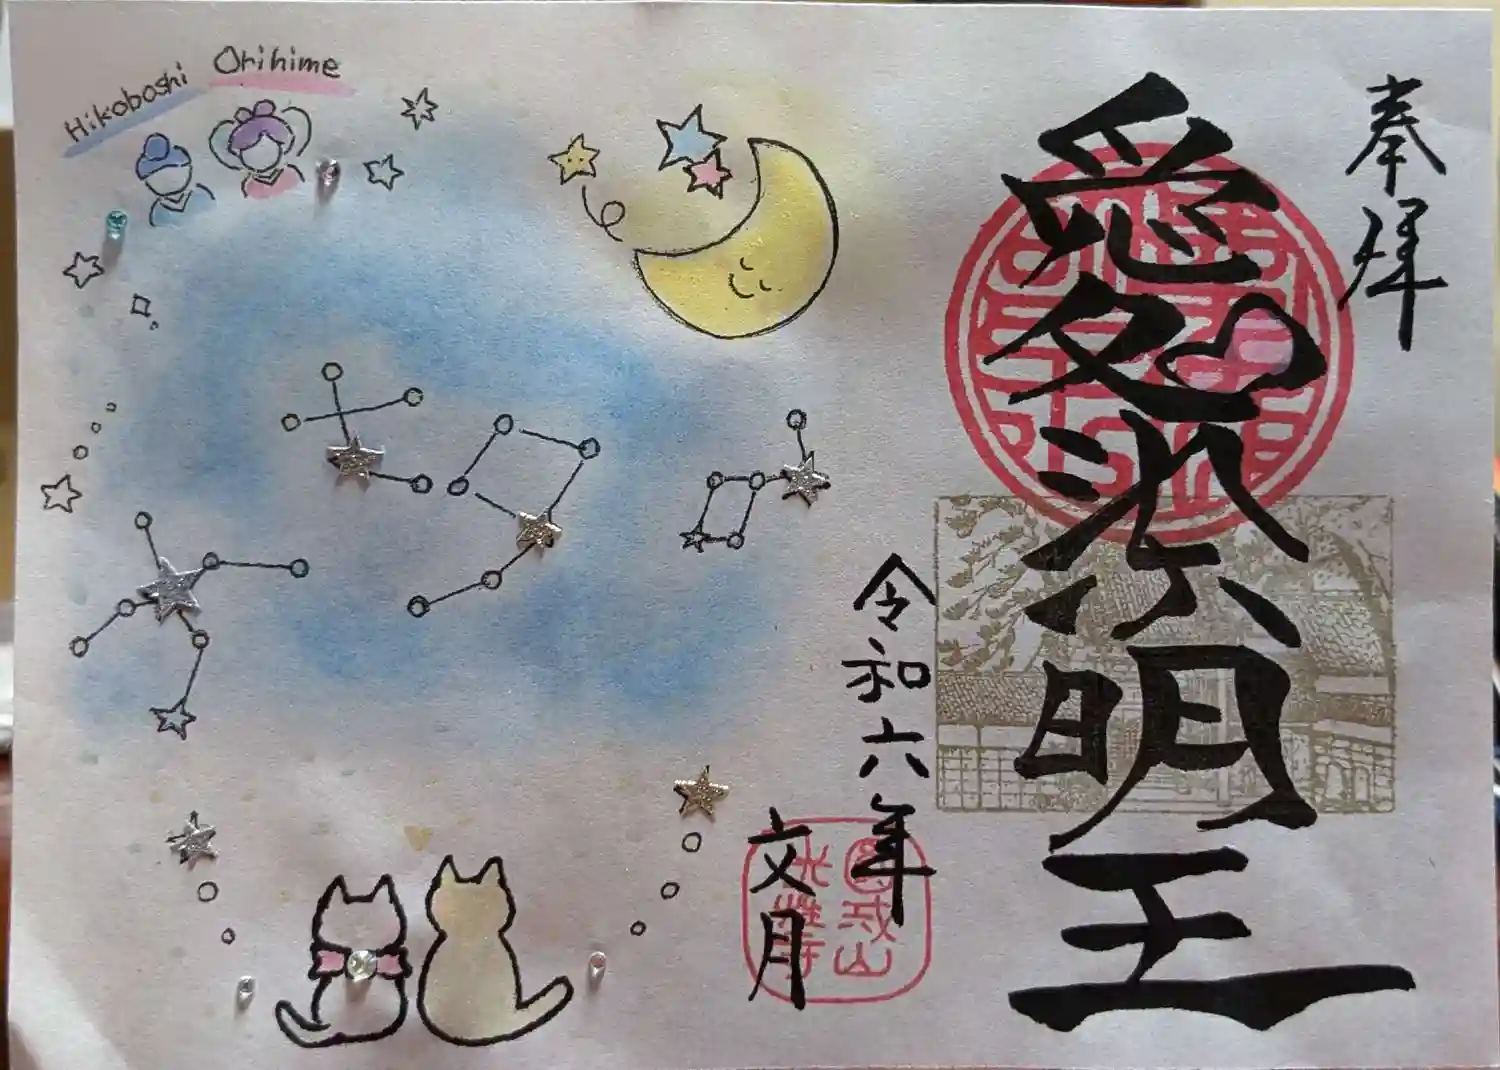 Hikoboshi
Orihime
奉拝
愛染明王
令和六年
文月